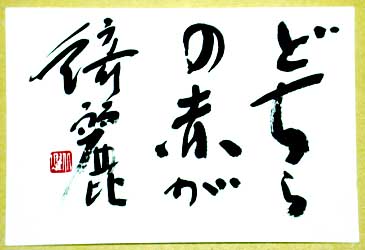 どちら
の赤が
綺麗